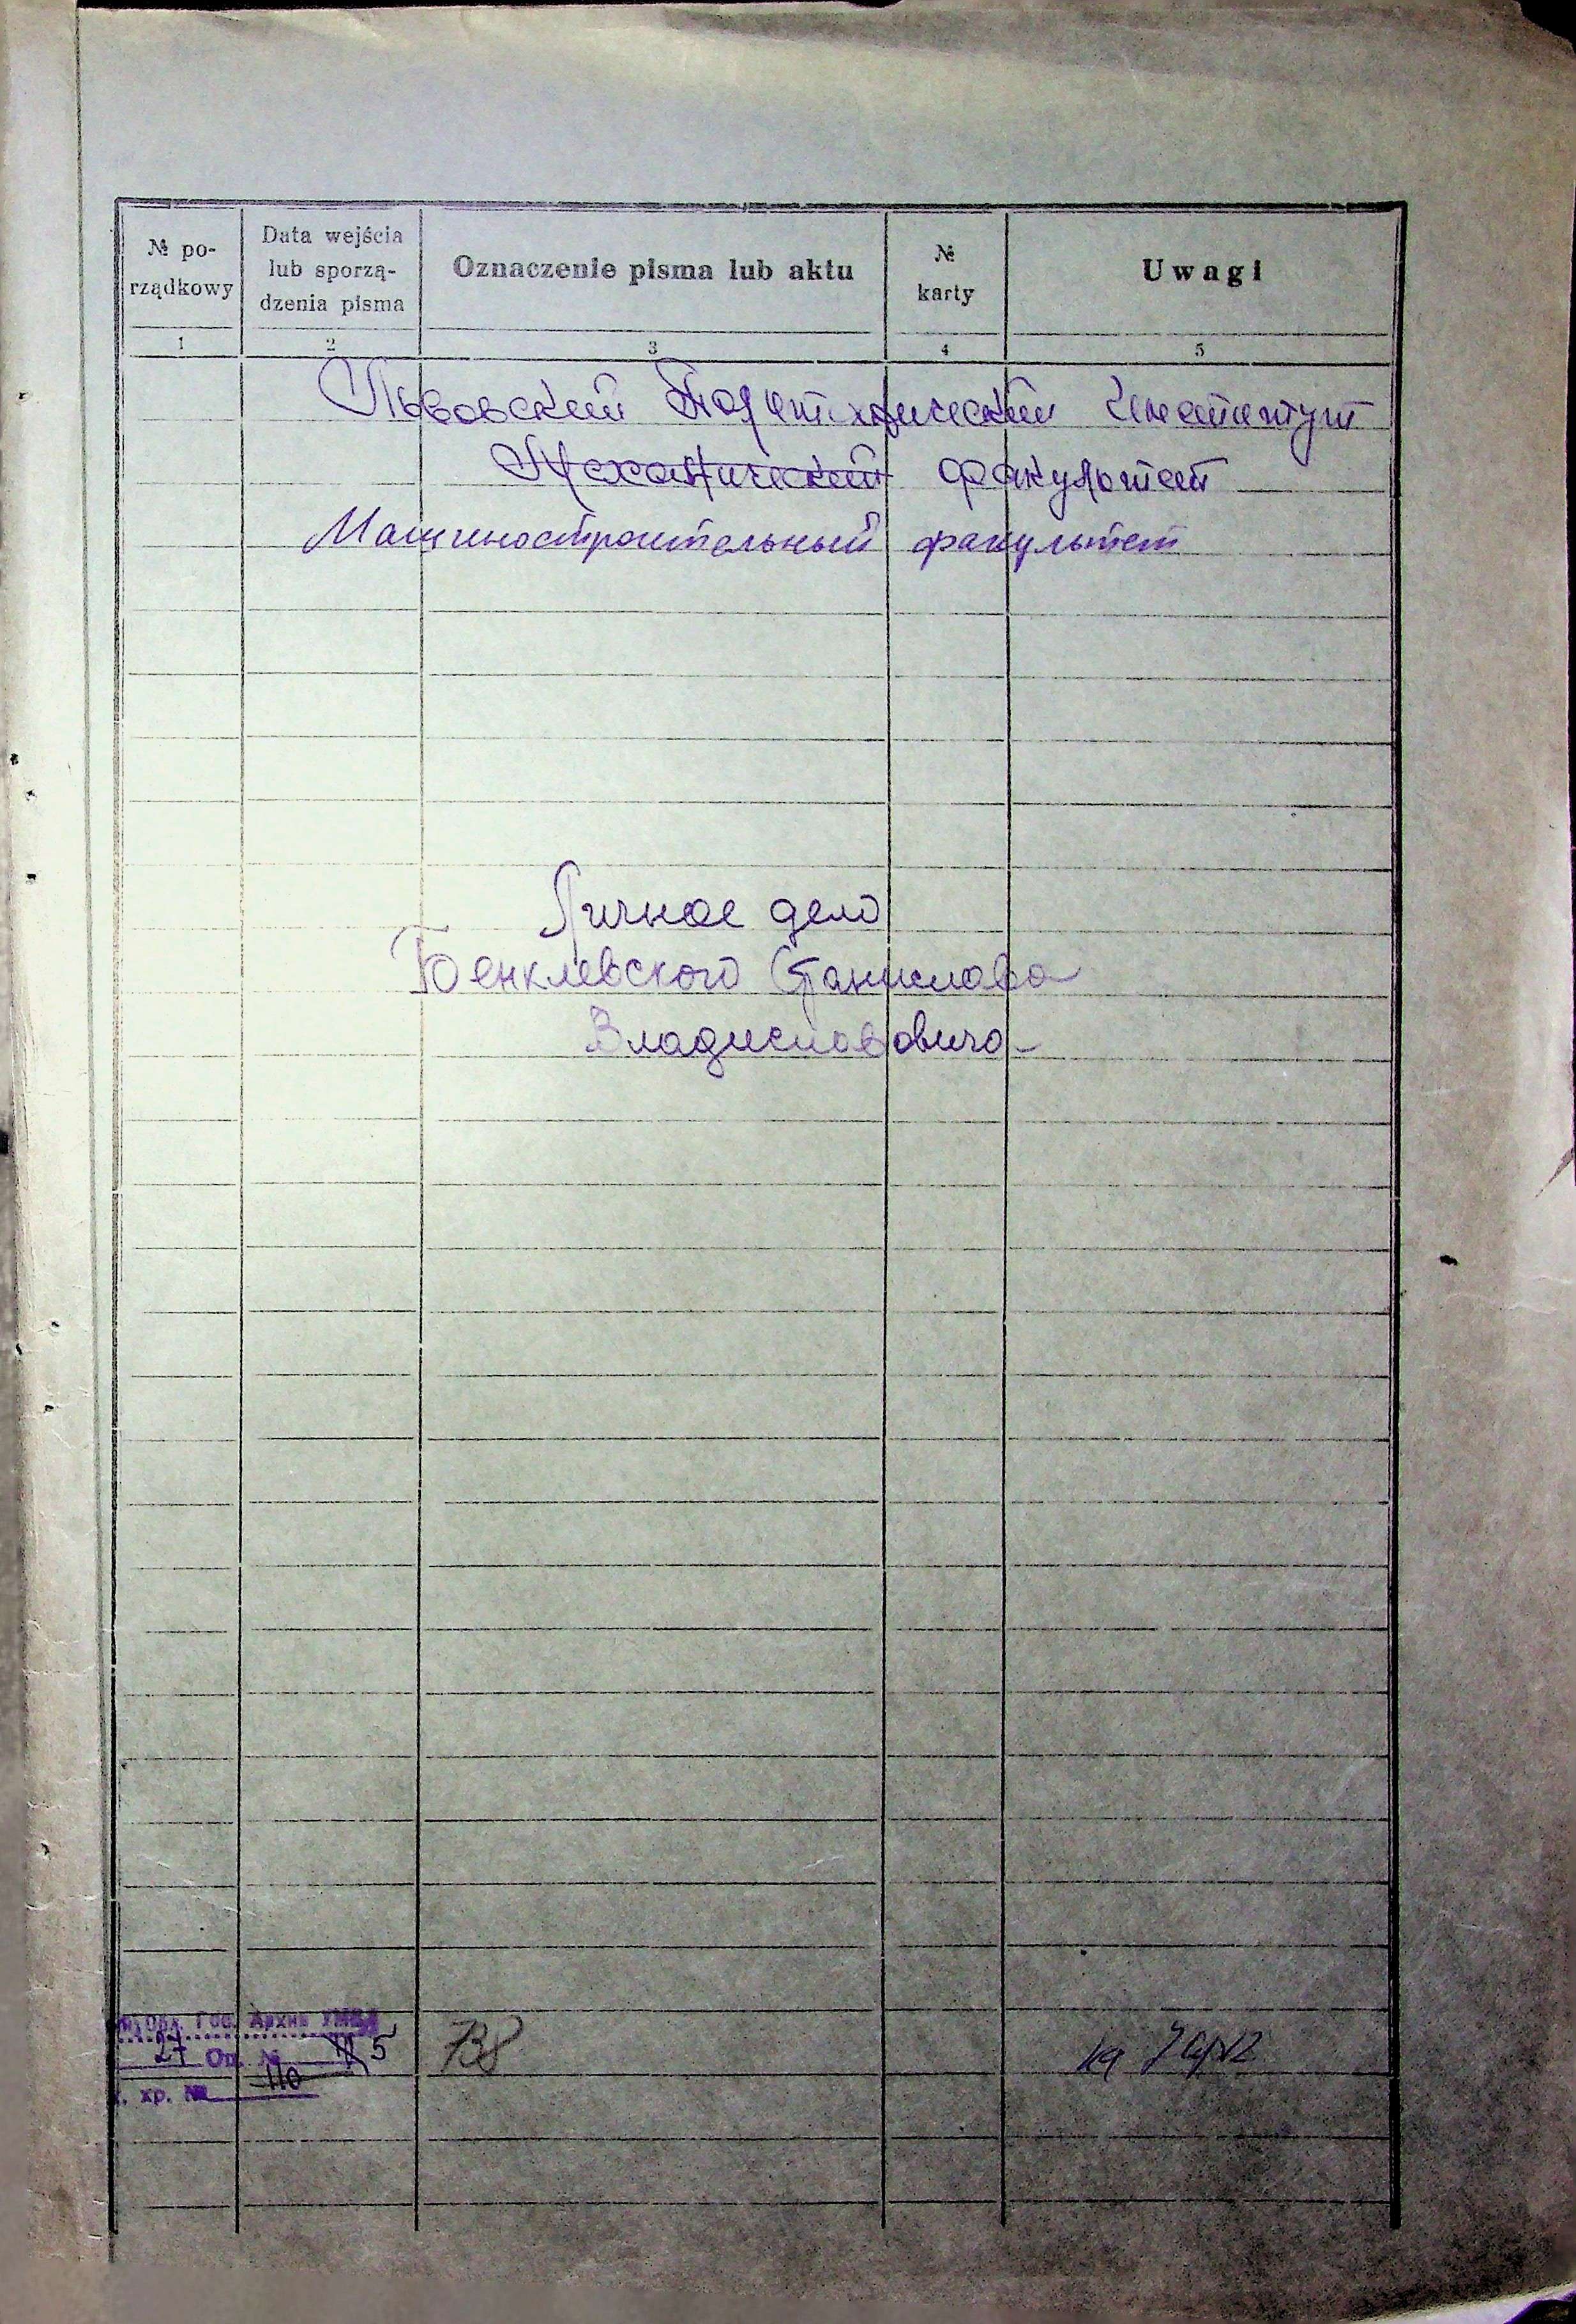 № po-
rządkowy
Data wejścia
lub sporzą-
dzenia pisma
Oznaczenie pisma lub aktu
№
karty
Uwagi
1 2 3 4 5
Львовский Политехнический Институт
Механический факультет
Машиностроительный факультет
Личное дело
Бенклевского Станислава
Владиславовича
Обл. Гос. Архив
27 Оп. № 5
738
на 7 арк
хр. № 110